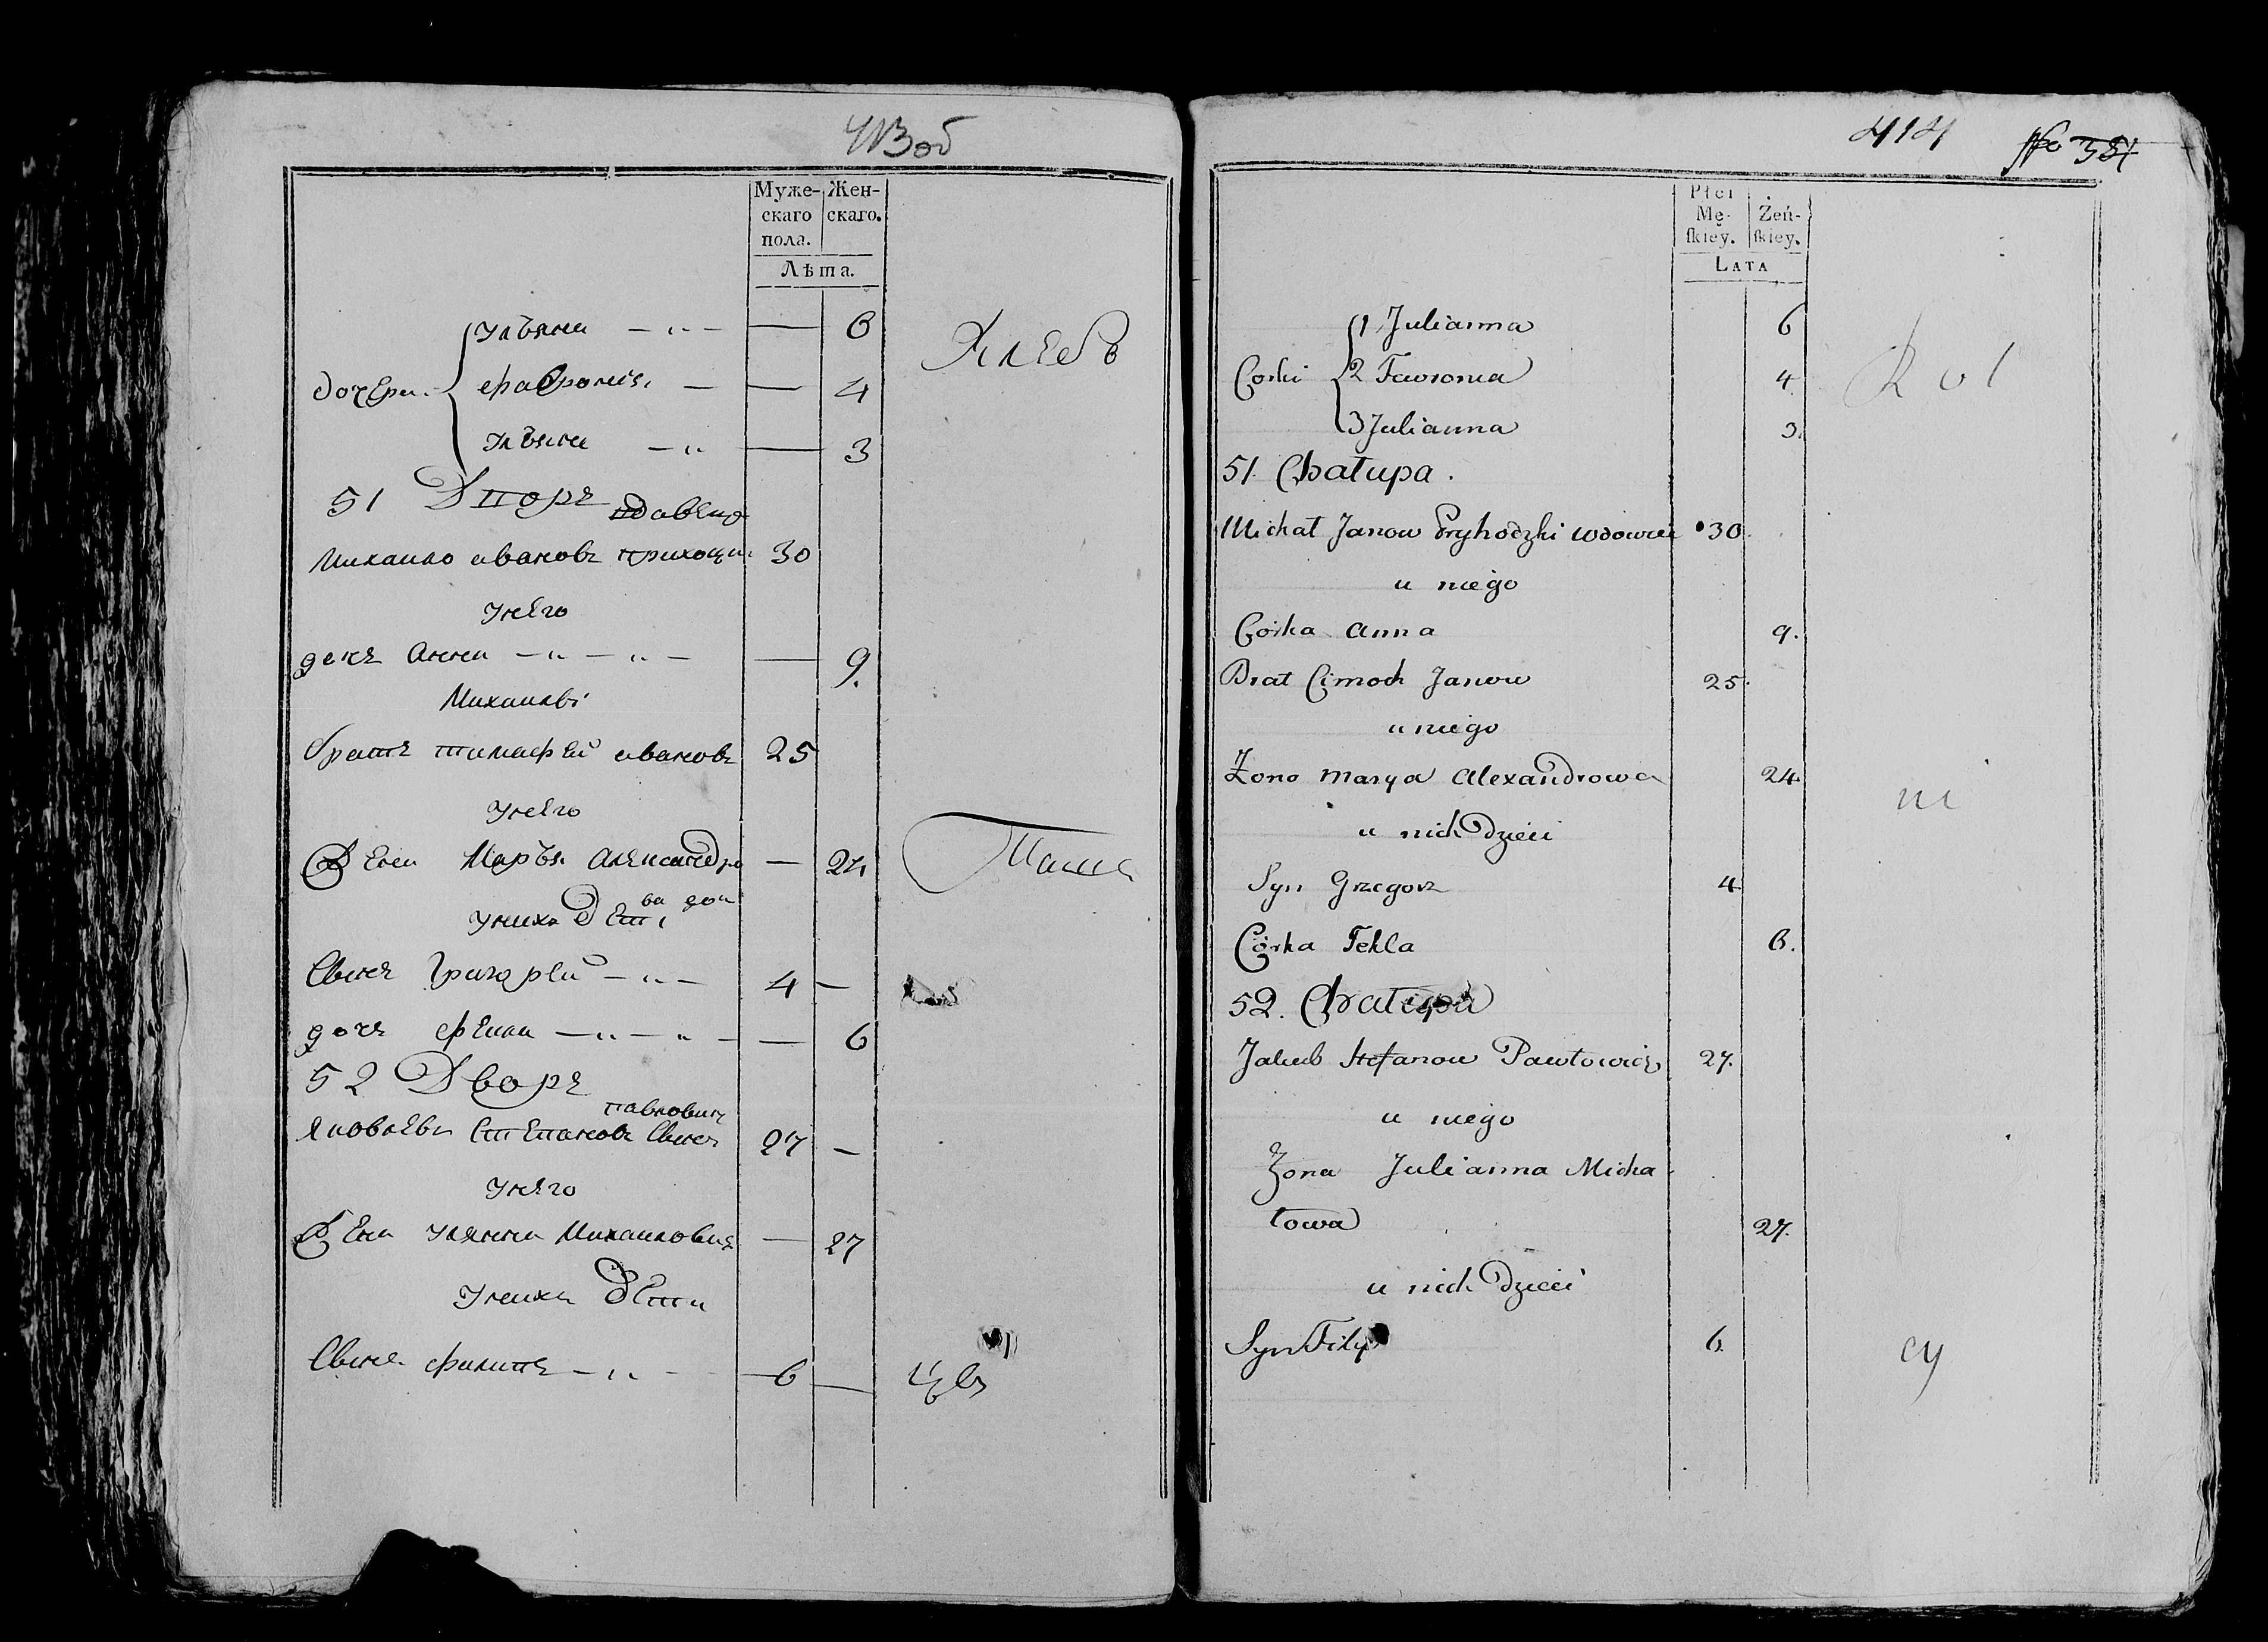 413 об
Муже-
скаго
пола.
Жен-
скаго.
Лѣта.
Ульяна 6
дочери фавронія 4
Ульяна 3
51 Дворъ
Михаило ивановъ 30
Унего
дочь Анна 9.
Михаилы
братъ тимафей ивановъ 25
Унего
Жена Марья Александро 24
ва доч
Унихъ дети
Сынъ Григорей 4
дочь фекла 6
52 Дворъ
павлович
Степановъ Сынъ 27
Унего
Жена Ульяна Михаилова 27
Унихъ дети
Сынъ филипъ 6
Хлебъ
414
Płci
Mę-
ſkiey.
Żeń-
ſkiey.
LATA
1 Julianna 6
Corki 2 Fawronia 4
3 Julianna 3.
51. Chałupa.
Michał Janow Pryhodzki wdowiec 30
u niego
Corka Anna 9.
Brat Cimoch Janow 25.
u niego
Żona Marya Alexandrowa 24.
u nich Dzieci
Syn Grzegorz 4
Córka Tekla 6.
52. Chałupa
Jakub Stefanow Pawłowicz 27.
u niego
Żona Julianna Micha
łowa 27.
u nich Dzieci
Syn Filip 6.